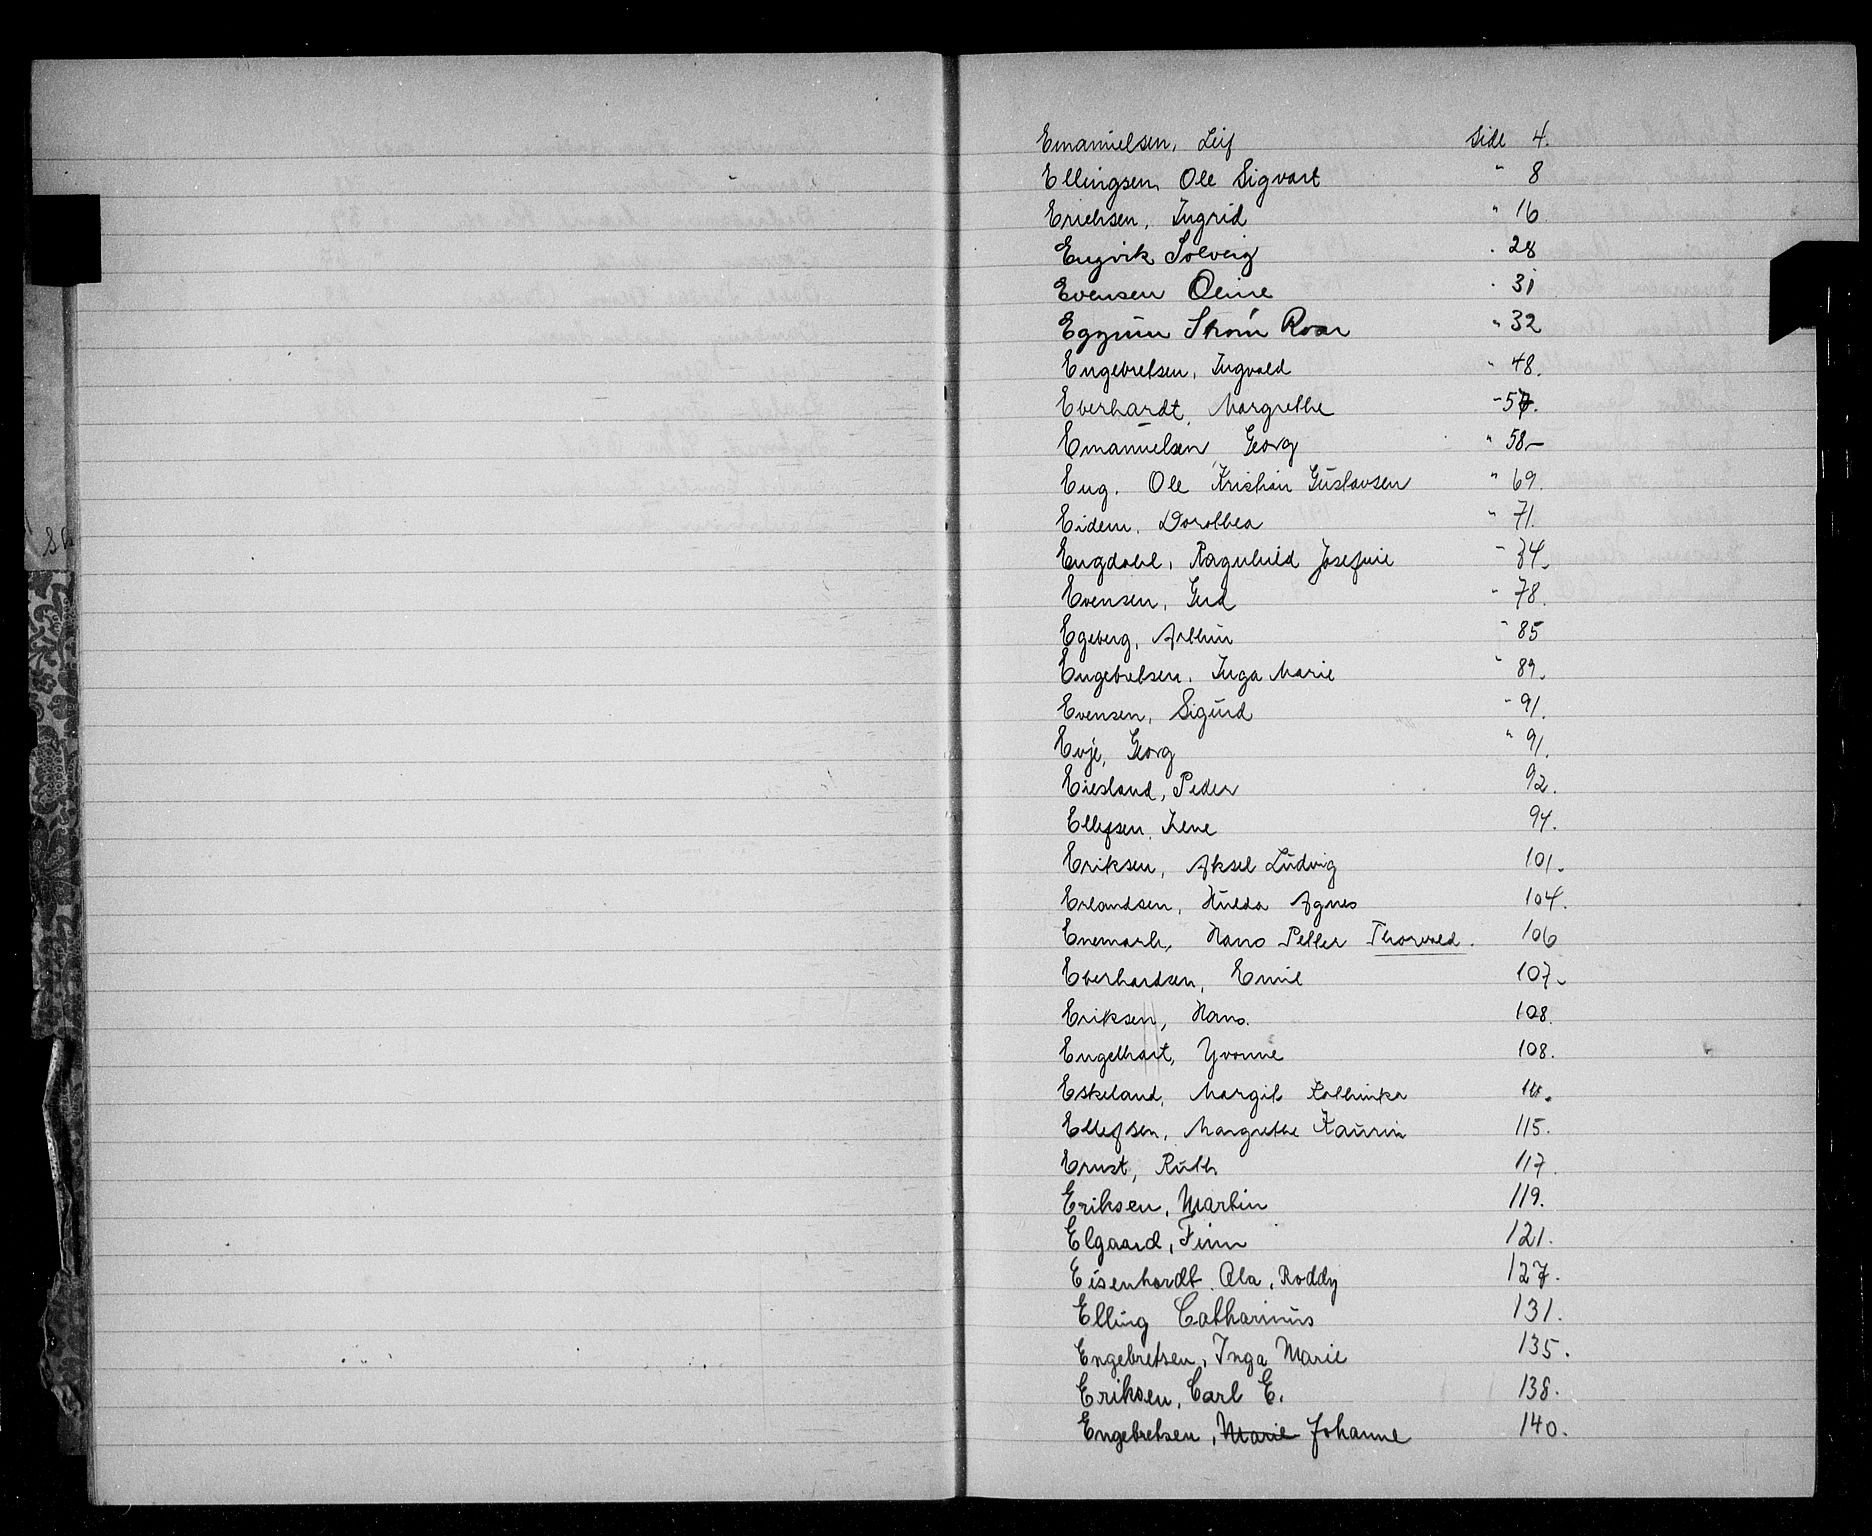 Emanuelsen, Leif side 4.
Ellingsen, Ole Sigvart " 8
Erichsen, Ingrid " 16
Engvik Solveig " 28
Evensen Oline " 31
Eggum Strøm Roar " 32
Engebretsen, Ingvald " 48.
Eberhardt, Margrethe " 57.
Emanuelsen Georg " 58-
Eng. Ole Kristian Gustavsen " 69.
Eidem, Dorothea " 71.
Engdahl, Ragnhild Josefine " 74.
Evensen, Gerd " 78.
Egeberg, Arthur " 85
Engebretsen, Inga Marie " 89.
Evensen, Sigurd " 91.
Evje, Georg " 91.
Eiesland, Peder 92.
Ellefsen, Irene 94.
Eriksen, Aksel Ludvig 101.
Erlandsen, Hulda Agnes 104.
Enemark, Hans Petter Thorvald. 106
Eberhardsen, Emil 107.
Eriksen, Hans. 108.
Engelhart, Yvonne 108.
Eskeland, Margit Kathinka
Ellefsen, Margrethe Kaurin 115.
Ernst, Ruth 117.
Eriksen, Martin 119.
Elgaard, Finn 121.
Eisenhardt Ala, Roddy 127.
Elling Catharinus 131.
Engebretsen, Inga Marie 135.
Eriksen, Carl E. 138.
Engebretsen, Marie Johanne 140.